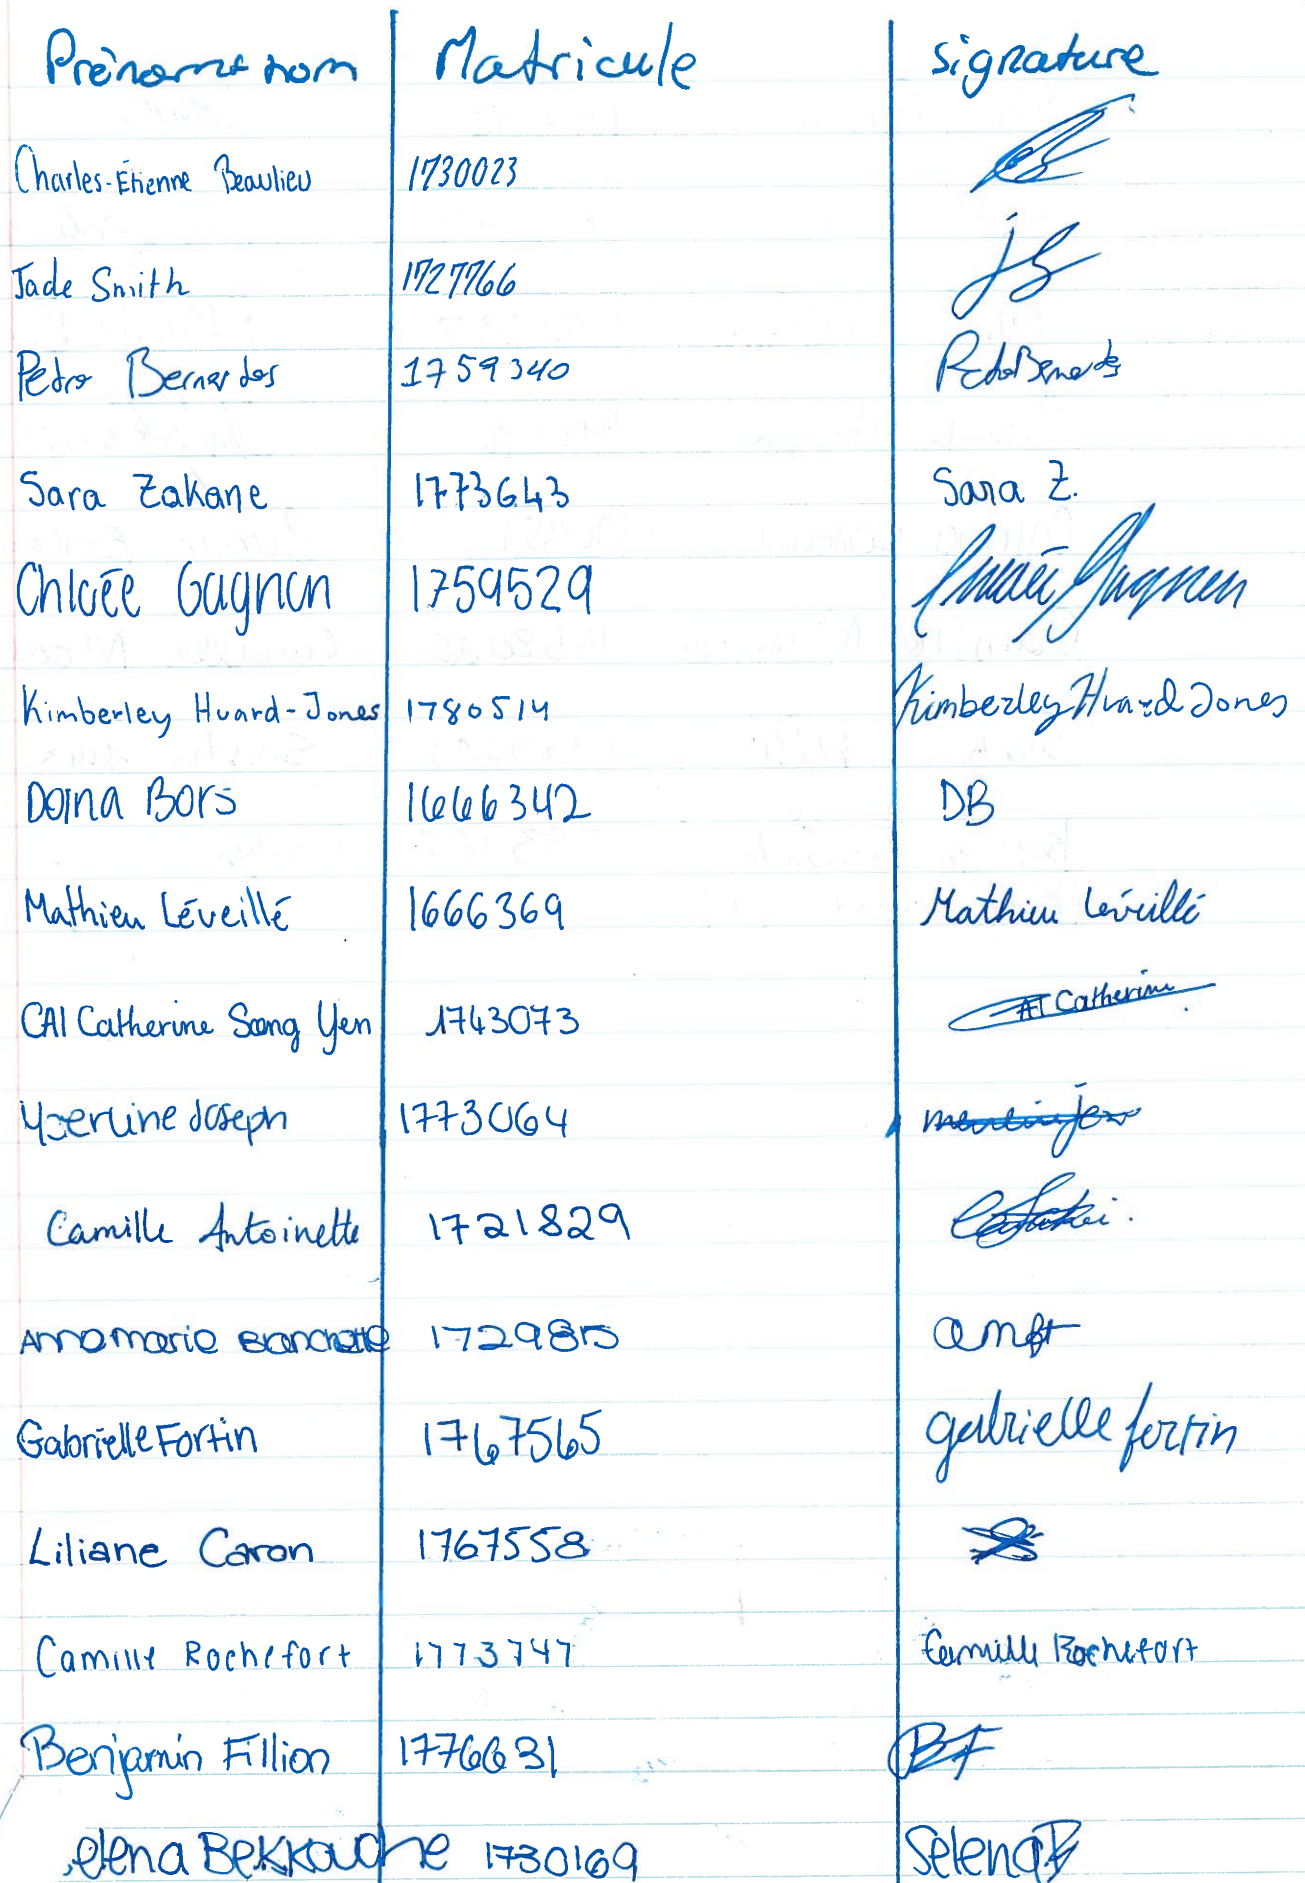 Prénom et nom Matricule signature
Charles-Étienne Beaulieu 1730023
Jade Smith 1727766 JS
Pedro Bernardos 1759340 Pedro Bernardos
Sara Zakane 1773643 Sara Z.
Chloée Gagnon 1759529 Chloée Gagnon
Kimberley Huard-Jones 1780514 Kimberley Huard Jones
Doina Bors 1666342 DB
Mathieu Léveillé 1666369 Mathieu Léveillé
CAI Catherine Song Yen 1743073 CAI Catherine
Joseph 1773064
Camille Antoinette 1721829
Annamarie 172985
Gabrielle Fortin 1767565 gabrielle fortin
Liliane Caron 1767558
Camille Rochefort 1773747 Camille Rochefort
Benjamin Fillion 1776631 BF
elena Bekkouche 1730169 Selena B